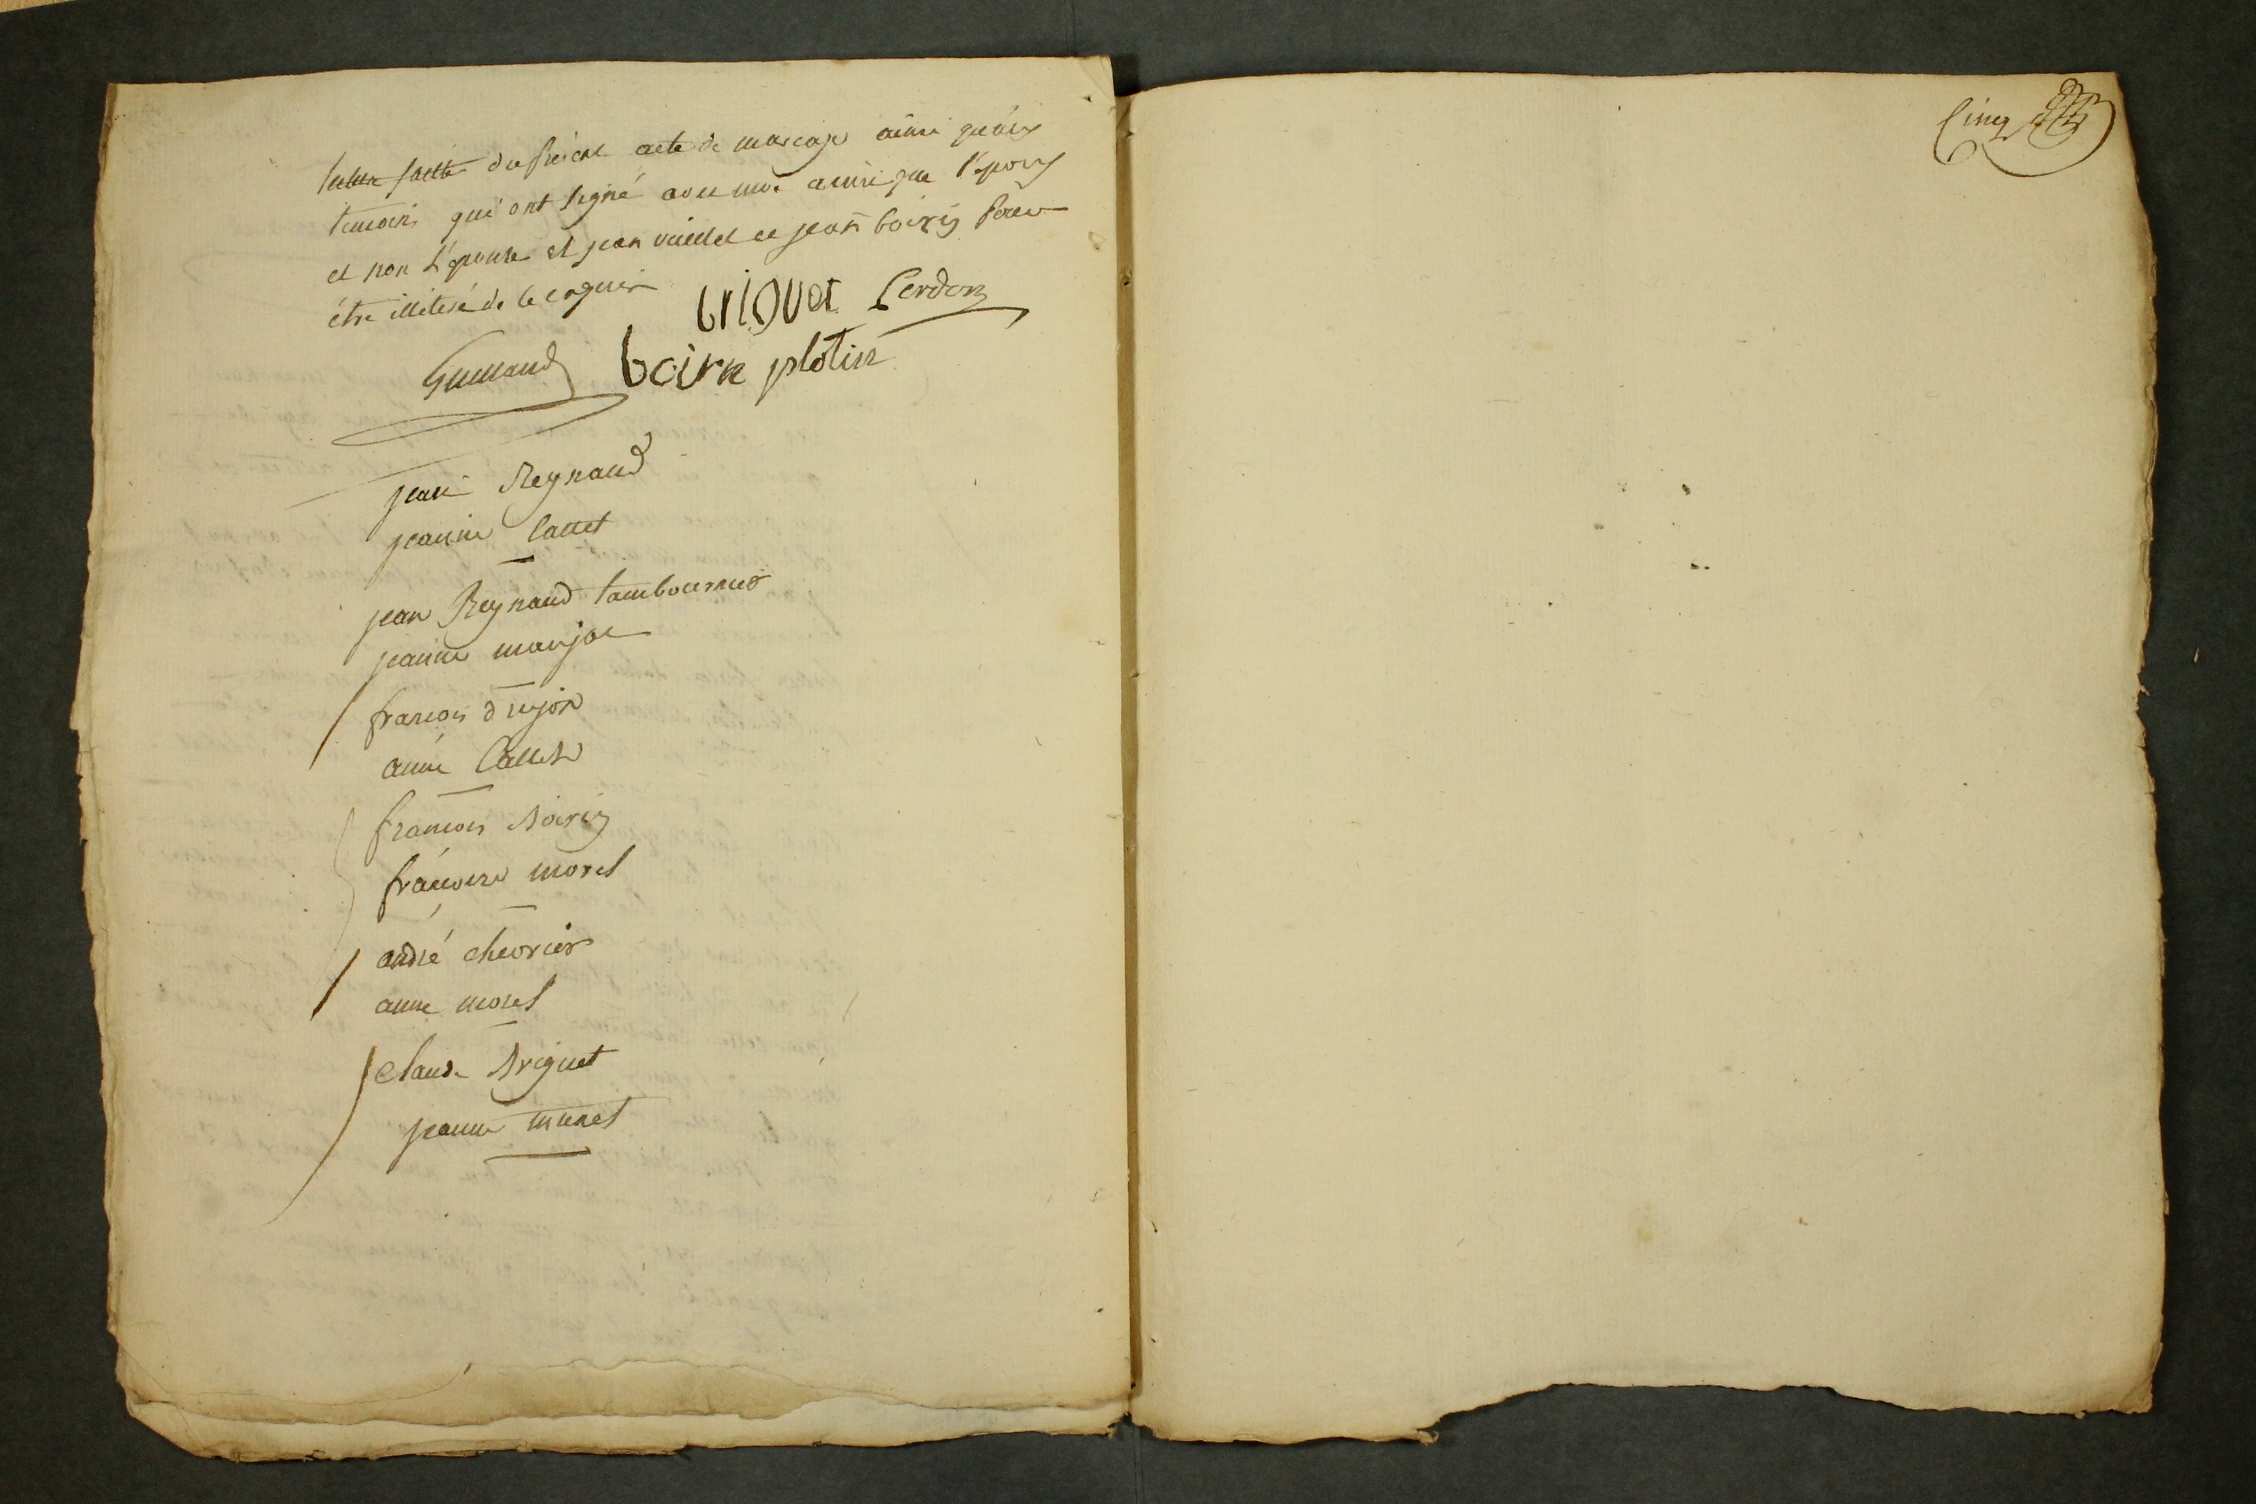 lecture faitte du présent acte de mariage ainsi qu'aux
temoins qui ont signé avec moi ainsi que l'epoux
et non l'épouse et jean et jean boiriy pour
être illiteré de ce enquis
briquet Cerdon
boirie plotin
jean Reynaud
jeanne Callet
jean Reynaud tambourneur
jeanne maujot
francois dujon
anne Callet
francois Boiriy
francoise morel
andré chevrier
anne morel
Claude Briguet
jeanne munet
Cinq